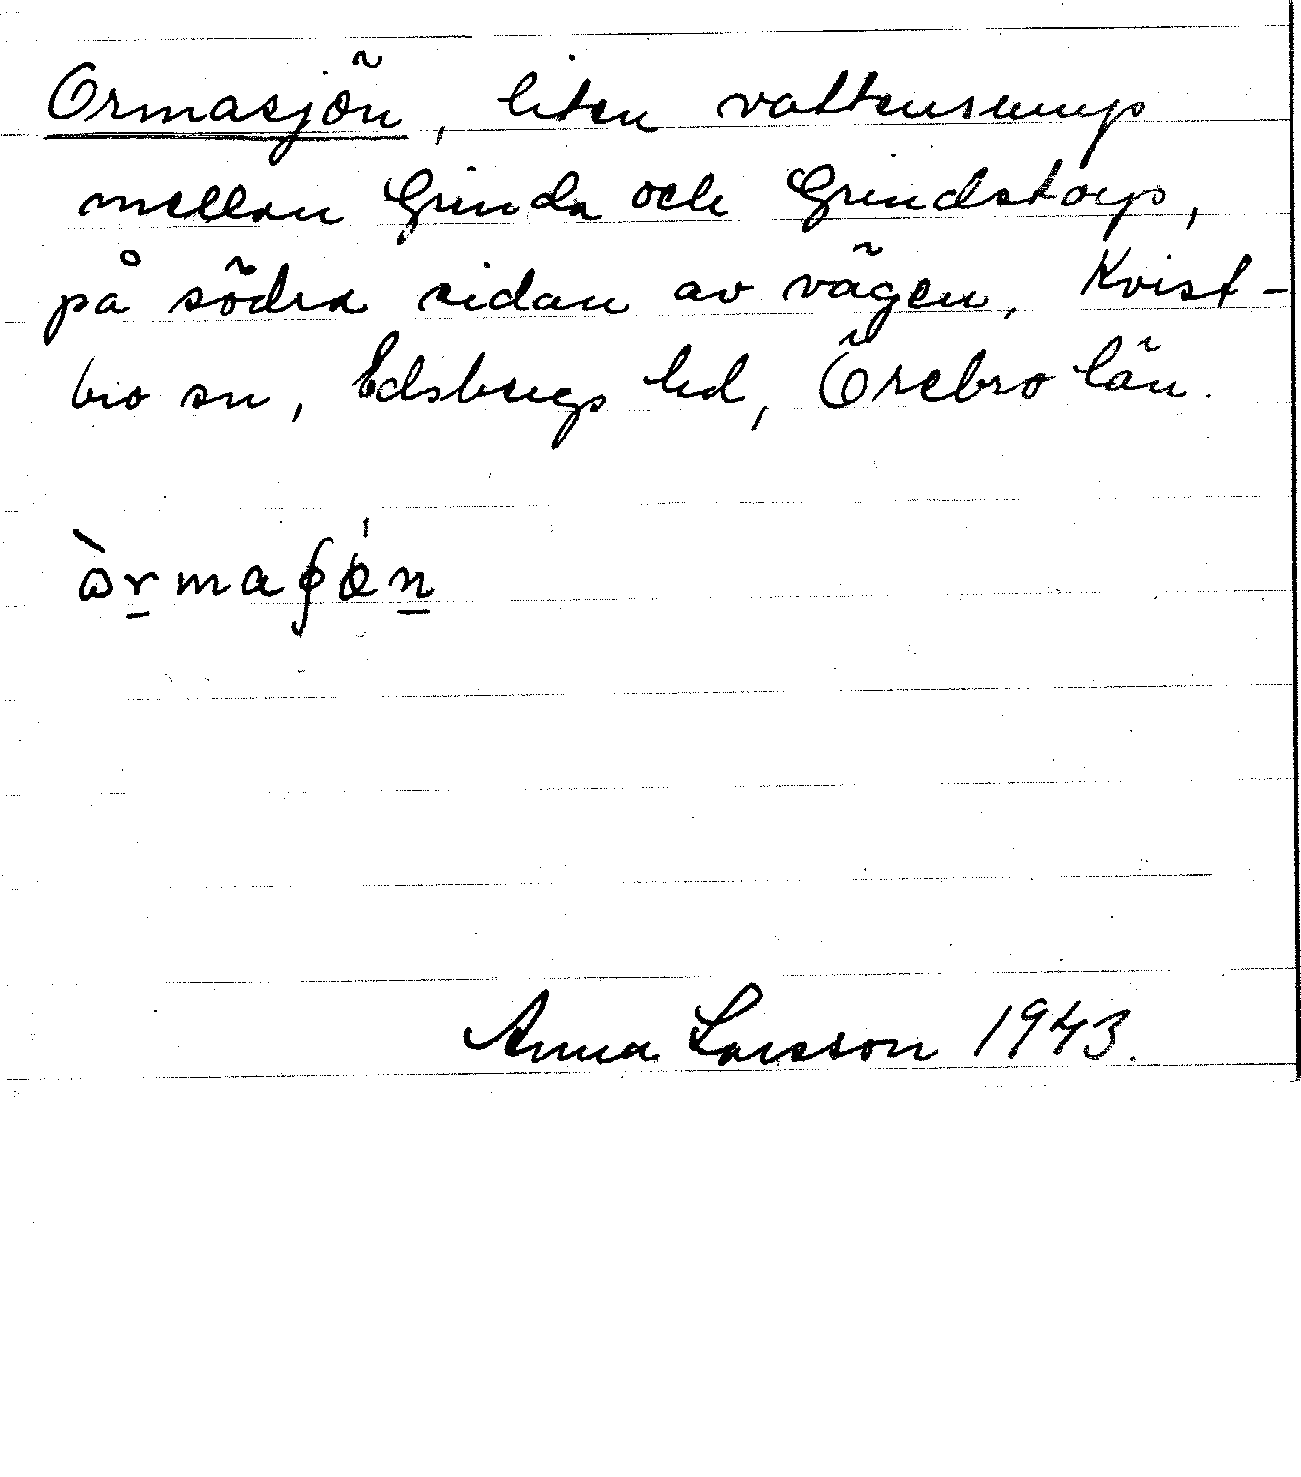 Ormasjön, liten vattensump
mellan Grinda och Grindstorp,
på södra sidan av vägen, Kvist-
bro sn, Edsbergs hd, Örebro län.
Anna Larsson 1943.